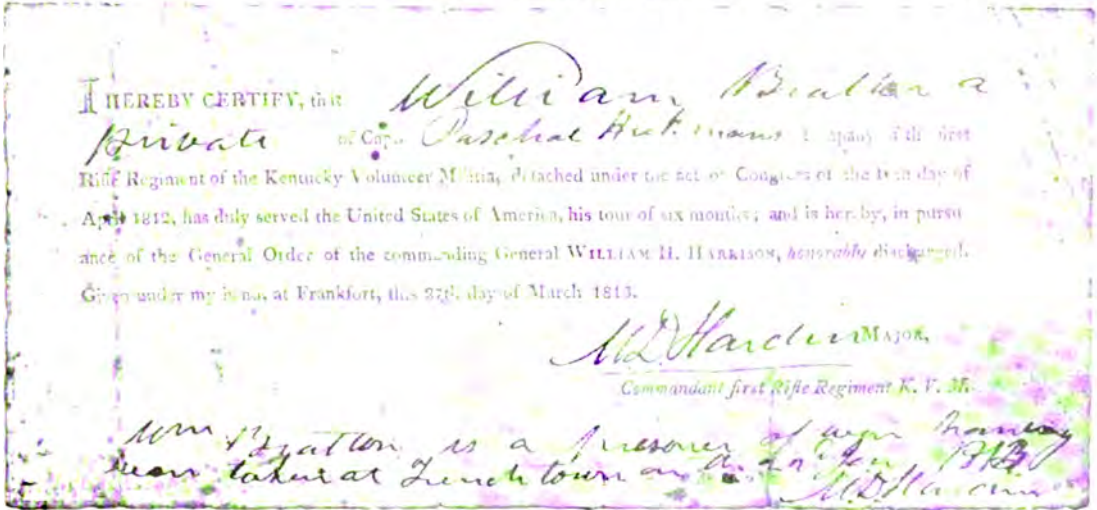 I HEREBY CERTIFY, that William Bratton a
private of Capt. Paschal Hickmans Company of the first
Rifle Regiment of the Kentucky Volunteer Militia, detached under the act of Congress of the tenth day of
April 1812, has duly served the United States of America, his tour of six months; and is hereby, in pursu
ance of the General Order of the commanding General WILLIAM H. HARRISON, honorably discharged.
Given under my hand, at Frankfort, this 27th day of March 1813.
MD Hardin MAJOR,
Commandant first Rifle Regiment K. V. M.
Wm Bratton is a prisoner of war having
been taken at Frenchtown on
MD Hardin